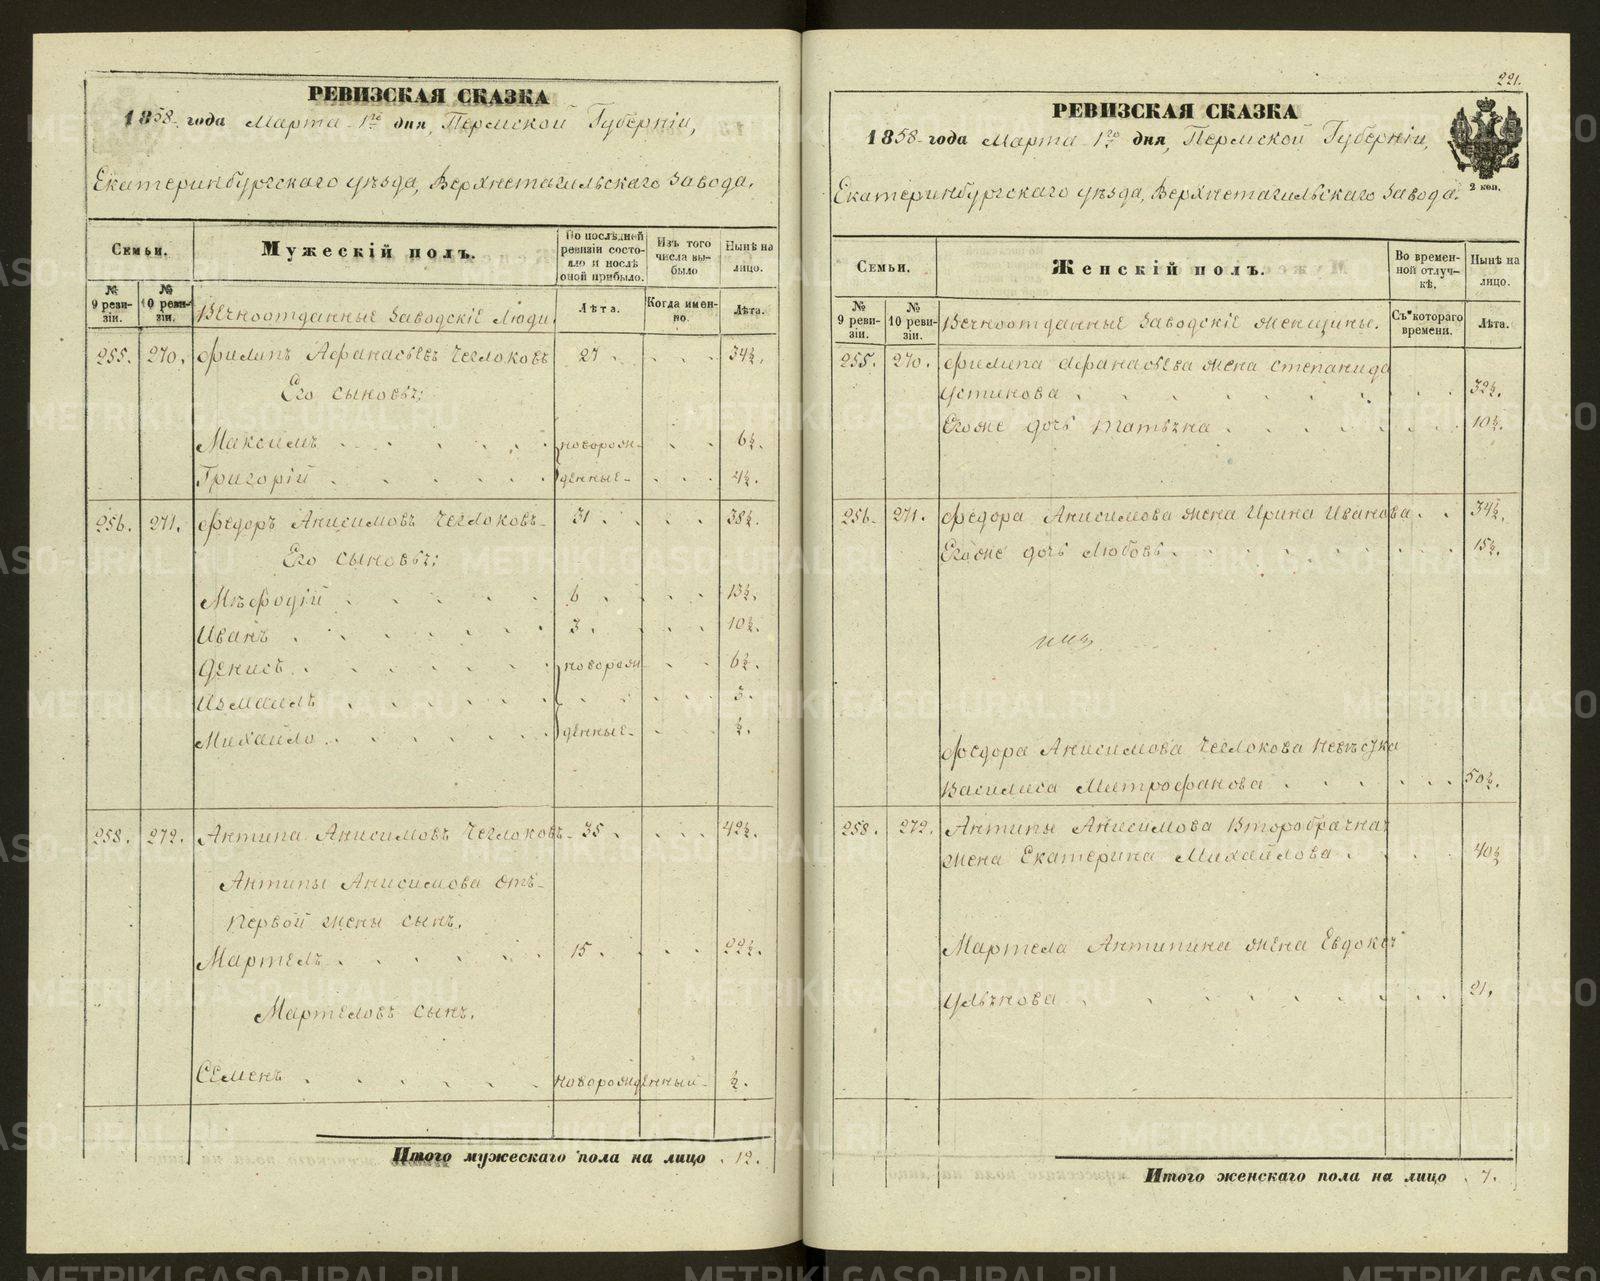 РЕВИЗСКАЯ СКАЗКА
1858 года Марта 1го дня, Пермской Губерніи,
Екатеринбургскаго уѣзда, Верхнетагильскаго Завода.
Семьи.
Мужескій полъ.
По послѣдней ревизіи состояло и послѣ оной прибыло.
Изъ того числа выбыло
Нынѣ на лицо.
№ 9 ревизіи.
№ 10 ревизіи.
Вѣчноотданные Заводскіе Люди.
Лѣта.
Когда именно.
Лѣта.
255. 270. Филипъ Афанасьевъ Чеглоковъ 27 34½.
Его сыновья:
Максимъ новорож- 6½.
Григорій денные 4½.
256. 271. Федоръ Анисимовъ Чеглоковъ 31 38½.
Его сыновья:
Мѣфодій 6 13½.
Иванъ 3. 10½.
Денисъ новорож- 6½.
Измаилъ 3.
Михайло денные ½.
258. 272. Антипа Анисимовъ Чеглоковъ 35 42½.
Антипы Анисимова отъ
первой жены сынъ.
Мартелъ 15 22½.
Мартеловъ сынъ.
Семенъ новорожденный ½.
Итого мужескаго пола на лицо 12.
221.
РЕВИЗСКАЯ СКАЗКА
1858 года Марта 1го дня, Пермской Губерніи,
Екатеринбургскаго уѣзда, Верхнетагильскаго Завода.
2 коп.
Семьи.
Женскій полъ.
Во временной отлучкѣ.
Нынѣ на лицо.
№ 9 ревизіи.
№ 10 ревизіи.
Вѣчноотданные Заводскіе женщины.
Съ котораго времени.
Лѣта.
255. 270. Филипа Афанасьева жена Степанида
Устинова 32½.
Егоже дочь Татьяна 10½.
256. 271. Федора Анисимова жена Ирина Иванова 34½.
Егоже дочь Любовь 15½.
Федора Анисимова Чеглокова невѣстка
Василиса Митрофанова 50½.
258. 272. Антипы Анисимова второбрачная
жена Екатерина Михайлова 40½
Мартела Антипина жена Евдокея
Ульянова 21.
Итого женскаго пола на лицо 7.
METRIKI.GASO-URAL.RU